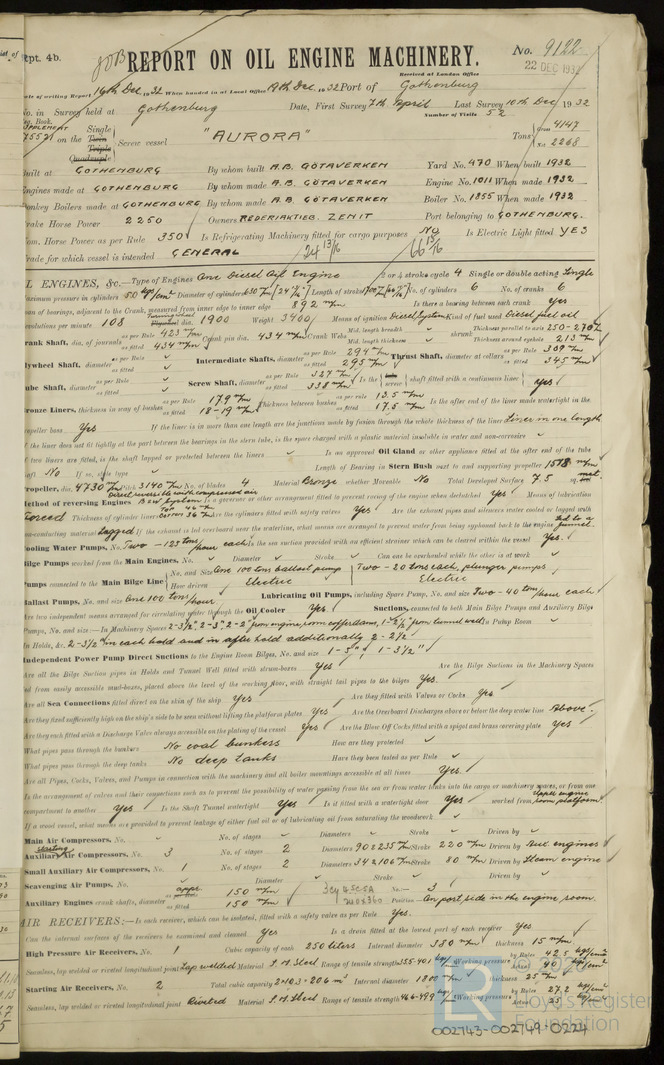 Rpt. 4b.
REPORT ON OIL ENGINE MACHINERY.
No. 9122
Received at London Office
22 DEC 1932
Date of writing Report 16th Dec. 1932 When handed in at Local Office 19th Dec. 1932 Port of Gothenburg
No. in Survey held at Gothenburg Date, First Survey 7th April Last Survey 10th Dec 1932
Reg. Book. Number of Visits 52
on the Single Twin Triple Quadruple Screw vessel "AURORA" Tons Gross 4147 Net 2268
Built at GOTHENBURG By whom built A.B. GÖTAVERKEN Yard No. 470 When built 1932
Engines made at GOTHENBURG By whom made A.B. GÖTAVERKEN Engine No. 1011 When made 1932
Donkey Boilers made at GOTHENBURG By whom made A.B. GÖTAVERKEN Boiler No. 1855 When made 1932
Brake Horse Power 2250 Owners REDERIAKTIEB. ZENIT Port belonging to GOTHENBURG.
Nom. Horse Power as per Rule 350 Is Refrigerating Machinery fitted for cargo purposes No Is Electric Light fitted YES
Trade for which vessel is intended GENERAL 24 13/16 66 15/16
OIL ENGINES, &c.—Type of Engines One Diesel Oil Engine 2 or 4 stroke cycle 4 Single or double acting Single
Maximum pressure in cylinders 50 kgs/cm² Diameter of cylinders 630 m/m Length of stroke No. of cylinders 6 No. of cranks 6
Span of bearings, adjacent to the Crank, measured from inner edge to inner edge 892 m/m Is there a bearing between each crank Yes
Revolutions per minute 108 Flywheel dia. 1900 Weight 3400 Means of ignition Diesel System Kind of fuel used Diesel fuel oil
Crank Shaft, dia. of journals as per Rule 423 m/m as fitted 434 m/m Crank pin dia. 434 m/m Crank Webs Mid. length breadth Mid. length thickness shrunk Thickness parallel to axis 250-270 Thickness around eyehole 213 m/m
Flywheel Shaft, diameter as per Rule as fitted Intermediate Shafts, diameter as per Rule 294 m/m as fitted 295 m/m Thrust Shaft, diameter at collars as per Rule 309 m/m as fitted 345 m/m
Tube Shaft, diameter as per Rule as fitted Screw Shaft, diameter as per Rule 327 m/m as fitted 338 m/m Is the tube screw shaft fitted with a continuous liner yes
Bronze Liners, thickness in way of bushes as per Rule 17.9 m/m as fitted 18-19 m/m Thickness between bushes as per Rule 13.5 m/m as fitted 17.5 m/m Is the after end of the liner made watertight in the
propeller boss Yes If the liner is in more than one length are the junctions made by fusion through the whole thickness of the liner Liner in one length
If the liner does not fit tightly at the part between the bearings in the stern tube, is the space charged with a plastic material insoluble in water and non-corrosive
If two liners are fitted, is the shaft lapped or protected between the liners Is an approved Oil Gland or other appliance fitted at the after end of the tube
shaft No If so, state type Length of Bearing in Stern Bush next to and supporting propeller 1575 m/m
Propeller, dia. 4730 m/m Pitch 3140 m/m No. of blades 4 Material Bronze whether Moveable No Total Developed Surface 7.5 sq. met.
Method of reversing Engines Direct reversible with compressed air Is a governor or other arrangement fitted to prevent racing of the engine when declutched Yes Means of lubrication
Forced Thickness of cylinder liners Are the cylinders fitted with safety valves Yes Are the exhaust pipes and silencers water cooled or lagged with
non-conducting material Lagged If the exhaust is led overboard near the waterline, what means are arranged to prevent water from being syphoned back to the engine Led to a funnel.
Cooling Water Pumps, No. Two - 125 tons/hour each Is the sea suction provided with an efficient strainer which can be cleared within the vessel Yes.
Bilge Pumps worked from the Main Engines, No. Diameter Stroke Can one be overhauled while the other is at work
Pumps connected to the Main Bilge Line No. and Size One 100 tons ballast pump Two - 20 tons each, plunger pumps
How driven Electric Electric
Ballast Pumps, No. and size One 100 tons/hour Lubricating Oil Pumps, including Spare Pump, No. and size Two - 40 tons/hour each
Are two independent means arranged for circulating water through the Oil Cooler Yes Suctions, connected to both Main Bilge Pumps and Auxiliary Bilge
Pumps, No. and size:—In Machinery Spaces In Pump Room
In Holds, &c. 2-3½" in each hold and in after hold additionally 2-2½"
Independent Power Pump Direct Suctions to the Engine Room Bilges, No. and size 1-5", 1-3½"
Are all the Bilge Suction pipes in Holds and Tunnel Well fitted with strum-boxes Yes Are the Bilge Suctions in the Machinery Spaces
led from easily accessible mud-boxes, placed above the level of the working floor, with straight tail pipes to the bilges Yes.
Are all Sea Connections fitted direct on the skin of the ship Yes Are they fitted with Valves or Cocks Yes
Are they fixed sufficiently high on the ship's side to be seen without lifting the platform plates Yes Are the Overboard Discharges above or below the deep water line Above.
Are they each fitted with a Discharge Valve always accessible on the plating of the vessel Yes Are the Blow Off Cocks fitted with a spigot and brass covering plate Yes
What pipes pass through the bunkers No coal bunkers How are they protected
What pipes pass through the deep tanks No deep tanks Have they been tested as per Rule
Are all Pipes, Cocks, Valves, and Pumps in connection with the machinery and all boiler mountings accessible at all times Yes.
Is the arrangement of valves and their connections such as to prevent the possibility of water passing from the sea or from water tanks into the cargo or machinery spaces, or from one
compartment to another Yes Is the Shaft Tunnel watertight Yes Is it fitted with a watertight door Yes worked from Upper engine room platform
If a wood vessel, what means are provided to prevent leakage of either fuel oil or of lubricating oil from saturating the woodwork
Main Air Compressors, No. No. of stages Diameters Stroke Driven by
Auxiliary Starting Air Compressors, No. 3 No. of stages 2 Diameters 90 x 235 m/m Stroke 220 m/m Driven by Aux. engines
Small Auxiliary Air Compressors, No. 1 No. of stages 2 Diameters 34 x 106 m/m Stroke 80 m/m Driven by Steam engine
Scavenging Air Pumps, No. Diameter Stroke Driven by
Auxiliary Engines crank shafts, diameter appr. 150 m/m as fitted 150 m/m No. 3 Position On port side in the engine room.
AIR RECEIVERS:—Is each receiver, which can be isolated, fitted with a safety valve as per Rule Yes.
Can the internal surfaces of the receivers be examined and cleaned Yes Is a drain fitted at the lowest part of each receiver Yes
High Pressure Air Receivers, No. 1 Cubic capacity of each 250 liters Internal diameter 380 m/m thickness 15 m/m
Seamless, lap welded or riveted longitudinal joint Lap welded Material S.M. Steel Range of tensile strength Working pressure by Rules 42.5 kgs/cm² Actual 40 kgs/cm²
Starting Air Receivers, No. 2 Total cubic capacity 2 x 10.3 = 20.6 m³ Internal diameter 1800 m/m thickness 25 m/m
Seamless, lap welded or riveted longitudinal joint Riveted Material S.M. Steel Range of tensile strength Working pressure by Rules 27.2 kgs/cm² Actual 25 kgs/cm²
© 2020
LR
Lloyd's Register
Foundation
002743-002749-0224